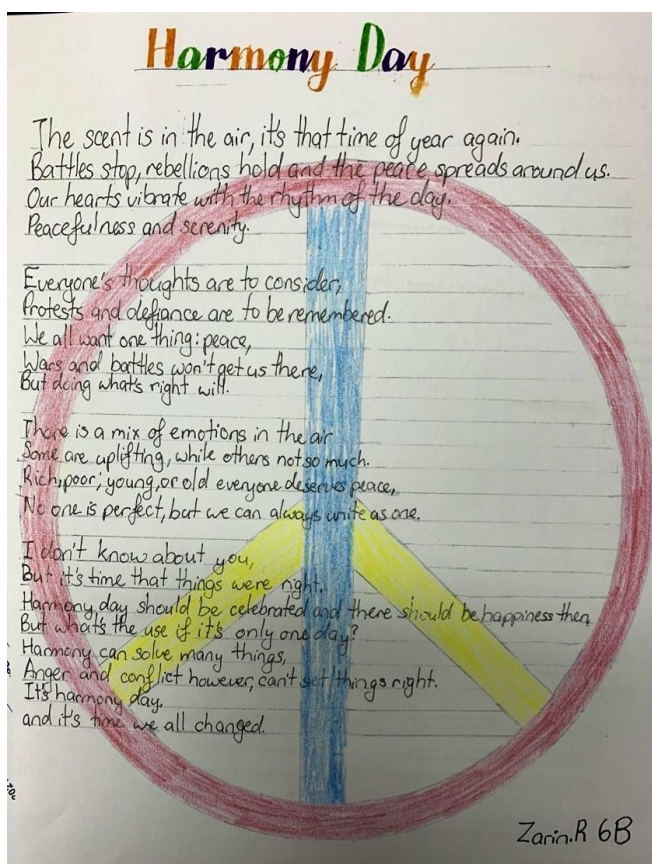 Harmony Day
The scent is in the air, it's that time of year again.
Battles stop, rebellions hold and the peace spreads around us.
Our hearts vibrate with the rhythm of the day.
Peacefulness and serenity.
Everyone's thoughts are to consider,
Protests and defiance are to be remembered.
We all want one thing: peace,
Wars and battles won't get us there,
But doing what's right will.
There is a mix of emotions in the air
Some are uplifting, while others not so much.
Rich, poor, young, or old everyone deserves peace,
No one is perfect, but we can always unite as one.
I don't know about you,
But it's time that things were right.
Harmony day should be celebrated and there should be happiness then,
But what's the use if it's only one day?
Harmony can solve many things,
Anger and conflict however, can't set things right.
It's harmony day,
and it's time we all changed.
Zarin.R 6B